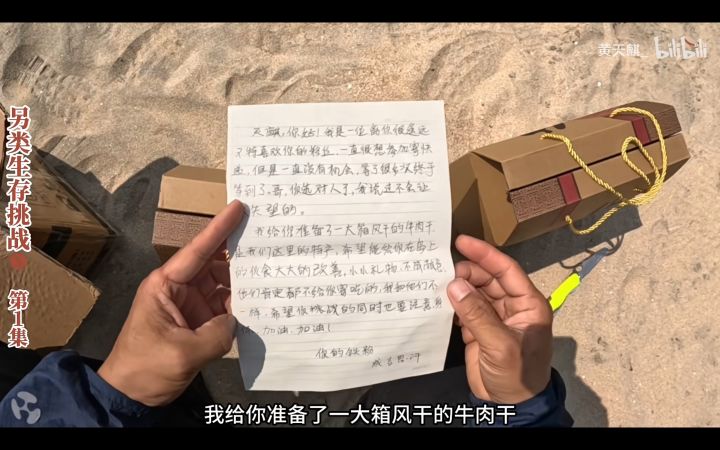 黄天麒
bilibili
另类生存挑战
第1集
天麒，你好！我是一位离你很遥远
又特喜欢你的粉丝，一直很想参加寄快
递，但是一直没有机会，等了很多次终于
等到了。哥，你选对人了，我说过不会让
失望的。
我给你准备了一大箱风干的牛肉干
是我们这里的特产，希望能给你在岛上
的伙食大大的改善。小小礼物，不成敬意
他们肯定都不给你寄吃的，我和他们不
一样，希望你挑战的同时也要注意身
加油，加油！
你的铁粉
成吉思汗
我给你准备了一大箱风干的牛肉干